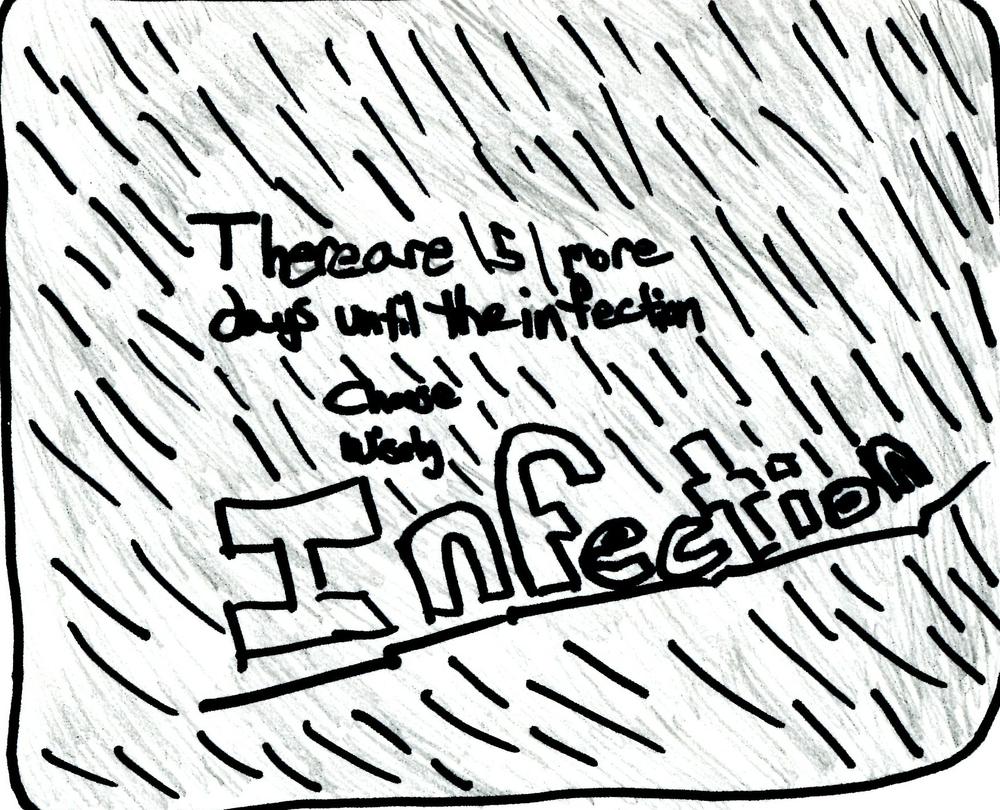 There are 15 more
days until the infection
Choose
Wisely
Infection